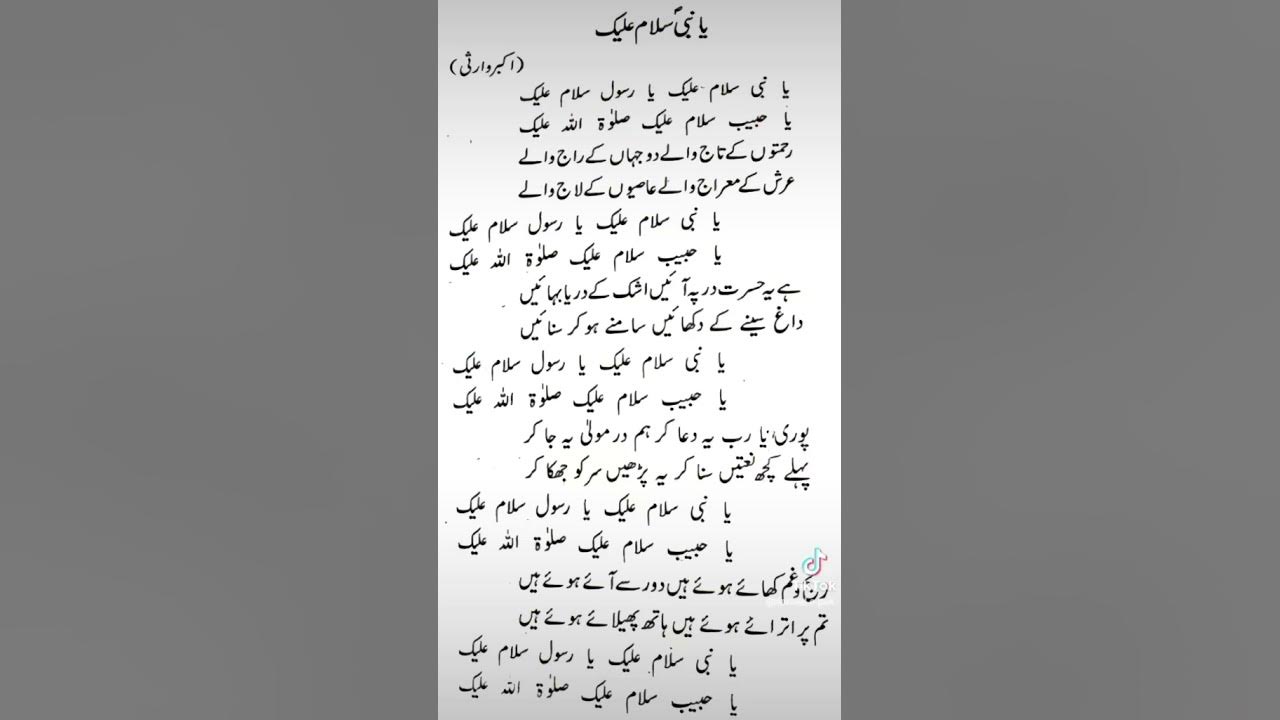 یا نبیؐ سلام علیک
(اکبر وارثی)
یا نبی سلام علیک یا رسول سلام علیک
یا حبیب سلام علیک صلوٰۃ اللہ علیک
رحمتوں کے تاج والے دو جہاں کے راج والے
عرش کے معراج والے عاصیوں کے لاج والے
یا نبی سلام علیک یا رسول سلام علیک
یا حبیب سلام علیک صلوٰۃ اللہ علیک
ہے یہ حسرت در پہ آئیں اشک کے دریا بہائیں
داغ سینے کے دکھائیں سامنے ہو کر سنائیں
یا نبی سلام علیک یا رسول سلام علیک
یا حبیب سلام علیک صلوٰۃ اللہ علیک
پوری یا رب یہ دعا کر ہم در مولیٰ یہ جا کر
پہلے کچھ نعتیں سنا کر یہ پڑھیں سر کو جھکا کر
یا نبی سلام علیک یا رسول سلام علیک
یا حبیب سلام علیک صلوٰۃ اللہ علیک
رنج و غم کھائے ہوئے ہیں دور سے آئے ہوئے ہیں
تم پر اترائے ہوئے ہیں ہاتھ پھیلائے ہوئے ہیں
یا نبی سلام علیک یا رسول سلام علیک
یا حبیب سلام علیک صلوٰۃ اللہ علیک